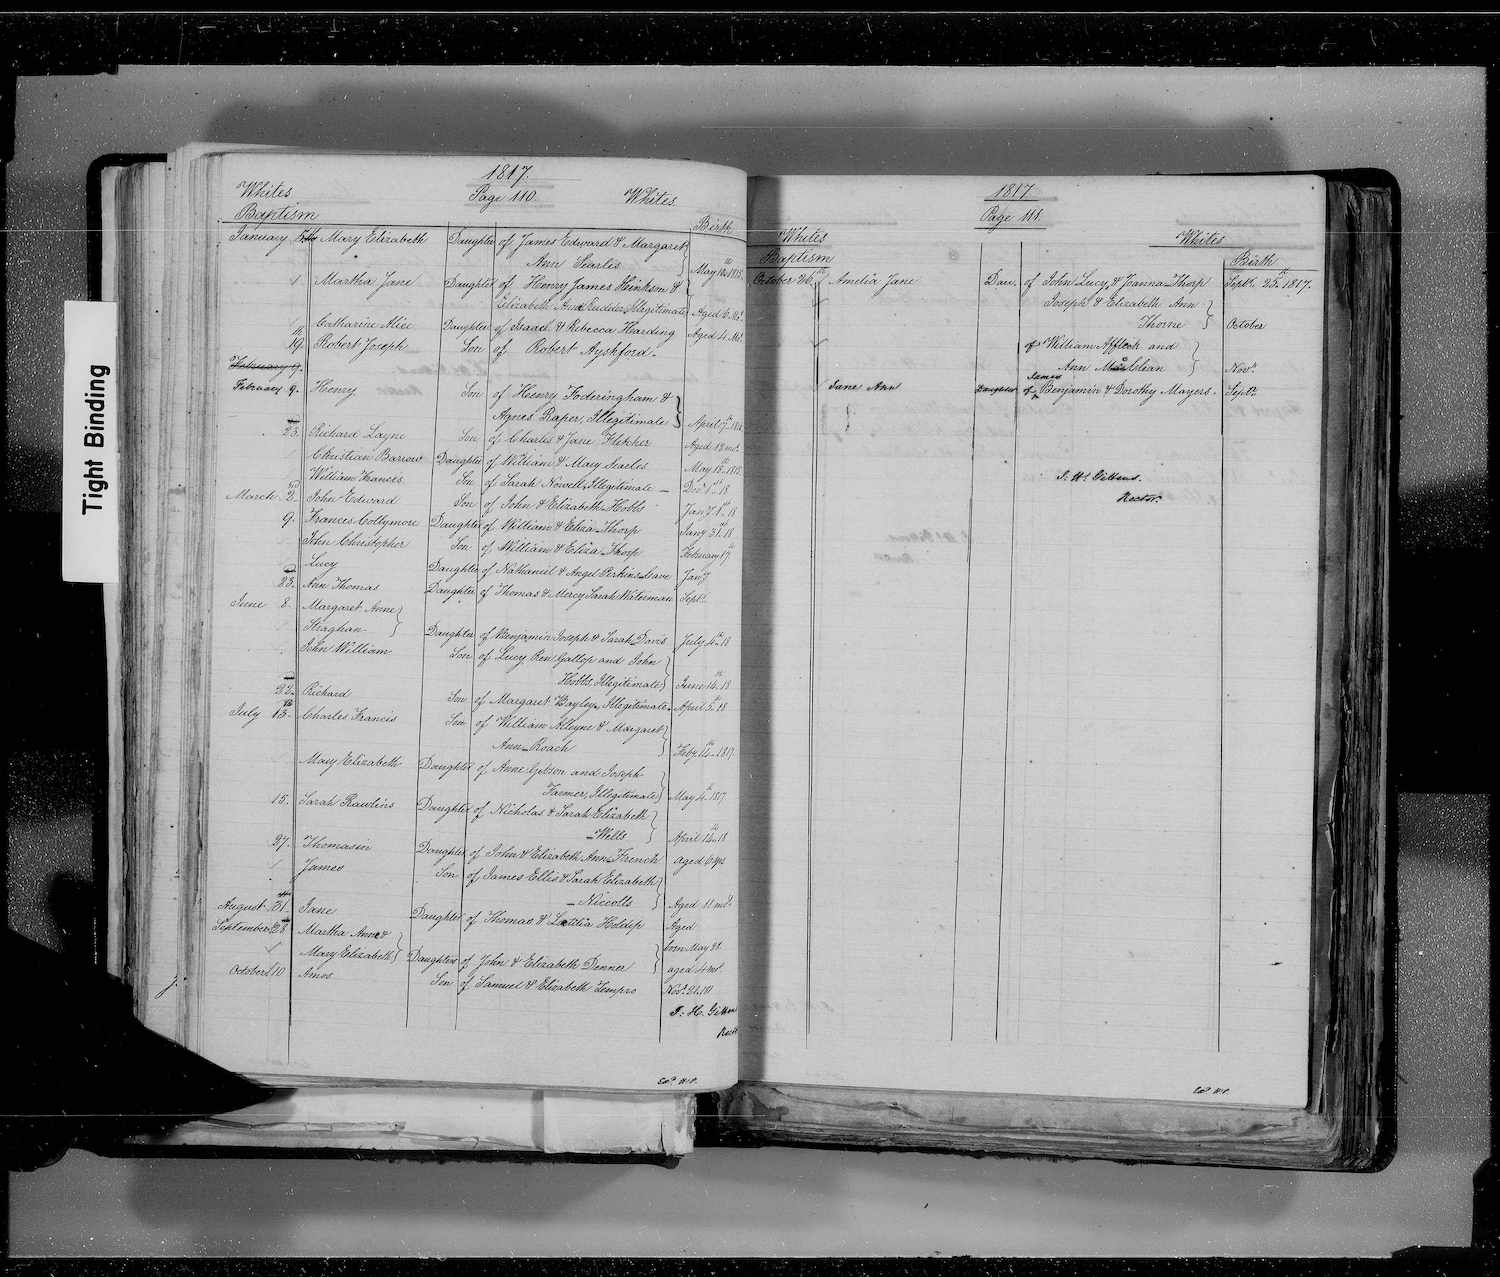 Tight Binding
1817.
Whites Page 110. Whites.
Baptism Birth
January Mary Elizabeth Daughter of James Edward & Margaret
Ann Searles May 1815
1 Martha Jane Daughter of Henry James Hinkson &
Elizabeth Ann Rudder, Illegitimate Aged 6 Mo.
Catharine Alice Daughter of Isaac & Rebecca Harding Aged 4 Mo.
19. Robert Joseph Son of Robert Ayshford.
February 9.
February 9. Henry Son of Henry Foderingham &
Agnes Raper, Illegitimate April 7th
23. Richard Layne Son of Charles & Jane Fletcher Aged 18 mo.
Christian Barrow Daughter of William & Mary Searles May 18th 1815
William Francis Son of Sarah Nowell, Illegitimate Decr. 1st 18
March 2nd John Edward Son of John & Elizabeth Hobbs Jany. 1st 18
9. Frances Collymore Daughter of William & Eliza Thorp Jany 31st 18
John Christopher Son of William & Eliza Thorp February 17
Lucy Daughter of Nathaniel & Angel Perkins Leave Jany
23. Ann Thomas Daughter of Thomas & Mercy Sarah Waterman Septr.
June 8. Margaret Anne
Straghan Daughter of Benjamin Joseph & Sarah Davis July 4th 18
John William Son of Lucy Ren Gallop and John
Hobbs, Illegitimate June 14th 18
22. Richard Son of Margaret Bayley, Illegitimate April 5th 18
July 13th Charles Francis Son of William Alleyne & Margaret
Ann Roach Feby. 14th 1817
Mary Elizabeth Daughter of Anne Gibson and Joseph
Farmer, Illegitimate May 4th 1817
15. Sarah Rawlins Daughter of Nicholas & Sarah Elizabeth
Wells April 14th 18
27. Thomasin Daughter of John & Elizabeth Ann French aged 6 yrs
James Son of James Ellis & Sarah Elizabeth
Niccolls Aged 11 mo.
August 31 Jane Daughter of Thomas & Lætitia Holdip Aged
September 28 Martha Anne & born May 22
Mary Elizabeth Daughters of John & Elizabeth Denner aged 4 mo.
October 10 Amos Son of Samuel & Elizabeth Tempro Novr. 21 181
J: H. Gitten
Rect
Exd. W.P.
1817
Page 111.
Whites Whites
Baptism Birth
October 26th Amelia Jane Dau. of John Lucy & Joanna Thorp Septr. 25th 1817.
Joseph & Elizabeth Ann
Thorne October
of William Affleck and
Ann Novr.
James
Jane Ann Daughter of Benjamin & Dorothy Mayers. Septr.
J. H. Gittens.
Rector.
Exd. W.P.